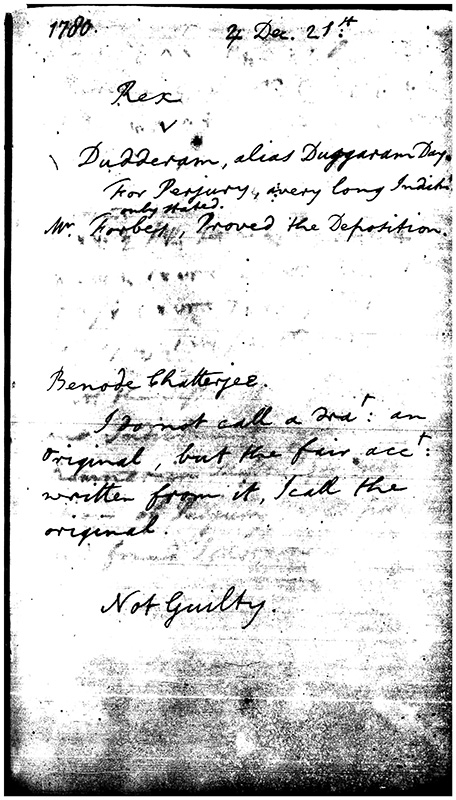 1780. 24 Dec. 21st:
Rex
v
Dudderam, alias Duggaram Day
For Perjury, a very long Indict
only stated.
Mr. Forbes, Proved the Deposition.
Benode Chatterjee.
I do not call a Drat: an
original, but the fair acct:
written from it, I call the
original.
Not Guilty.